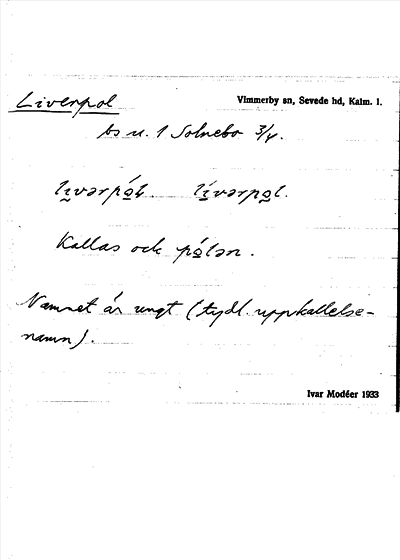 Liverpol
Vimmerby sn, Sevede hd, Kalm. l.
bs u. 1 Solnebo 3/4.
lívərpol.
Kallas och pólən.
Namnet är ungt (tydl. uppkallelse-
namn).
Ivar Modéer 1933